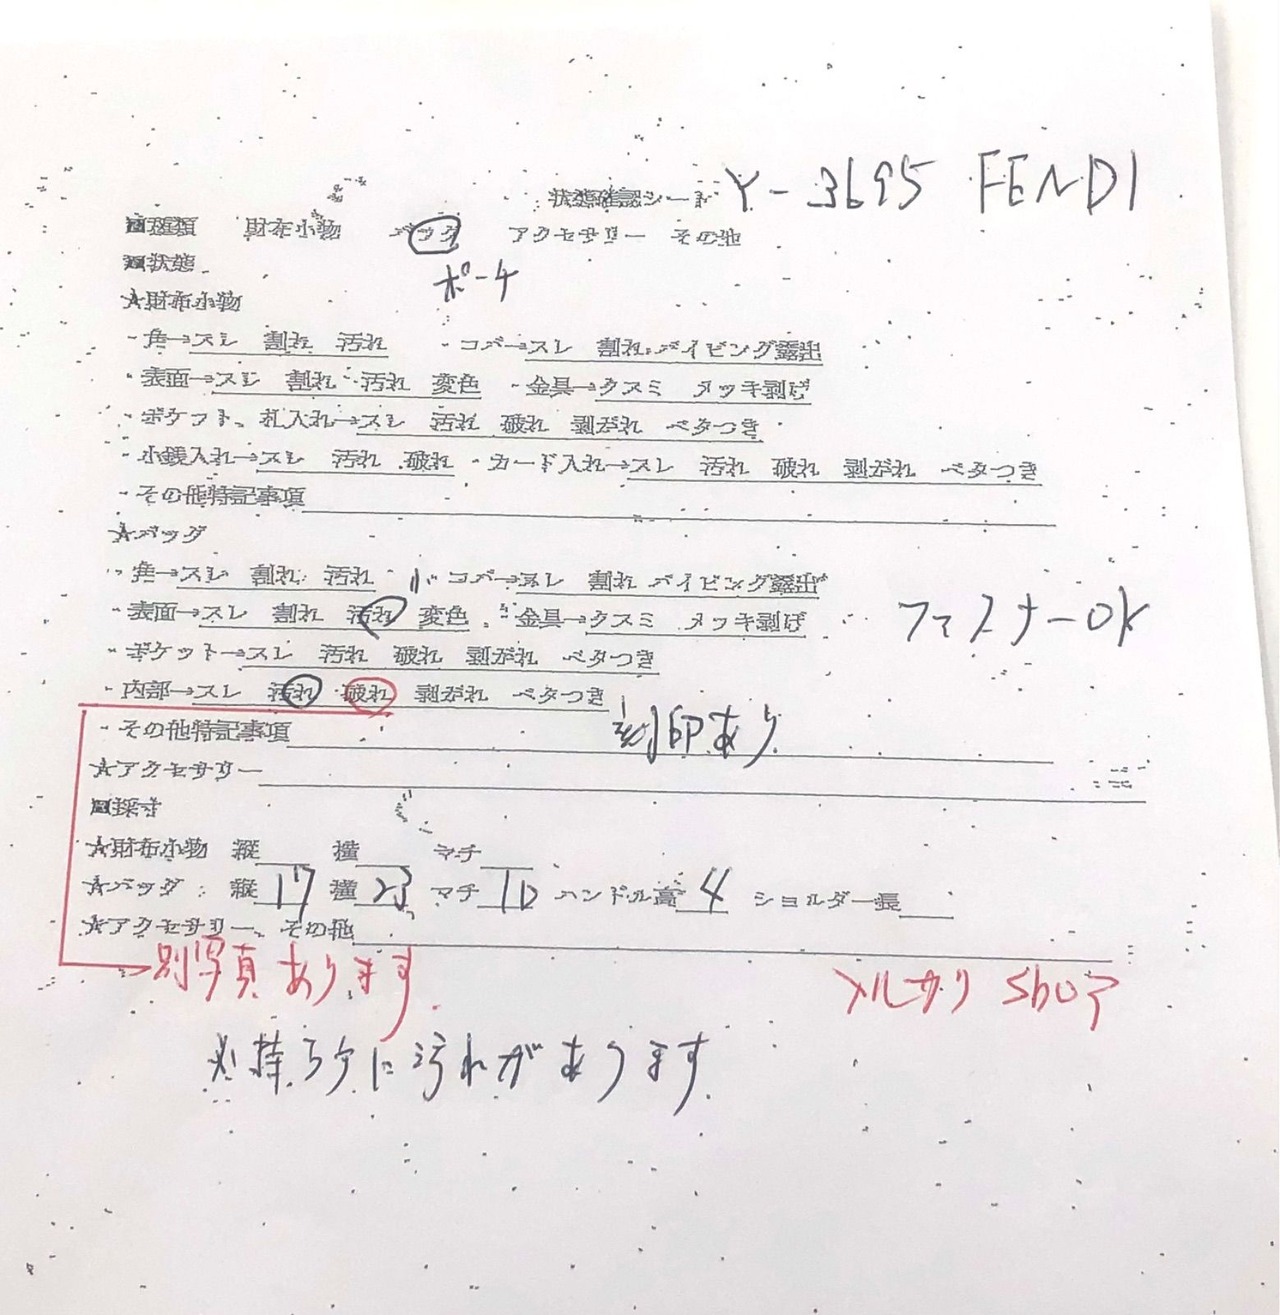 状態確認シート Y-3695 FENDI
■種類 財布小物 バッグ アクセサリー その他
■状態 ポーチ
★財布小物
・角→スレ 割れ 汚れ ・コバ→スレ 割れ パイピング露出
・表面→スレ 割れ 汚れ 変色 ・金具→クスミ メッキ剥げ
・ポケット、札入れ→スレ 汚れ 破れ 剥がれ ベタつき
・小銭入れ→スレ 汚れ 破れ ・カード入れ→スレ 汚れ 破れ 剥がれ ベタつき
・その他特記事項
★バッグ
・角→スレ 割れ 汚れ ・コバ→スレ 割れ パイピング露出
・表面→スレ 割れ 汚れ 変色 ・金具→クスミ メッキ剥げ ファスナーOK
・ポケット→スレ 汚れ 破れ 剥がれ ベタつき
・内部→スレ 汚れ 破れ 剥がれ ベタつき
・その他特記事項 刻印あり
★アクセサリー
■採寸
★財布小物 縦 横 マチ
★バッグ 縦 17 横 23 マチ 10 ハンドル高 4 ショルダー長
★アクセサリー、その他
別写真あります メルカリ
※持ち手に汚れがあります